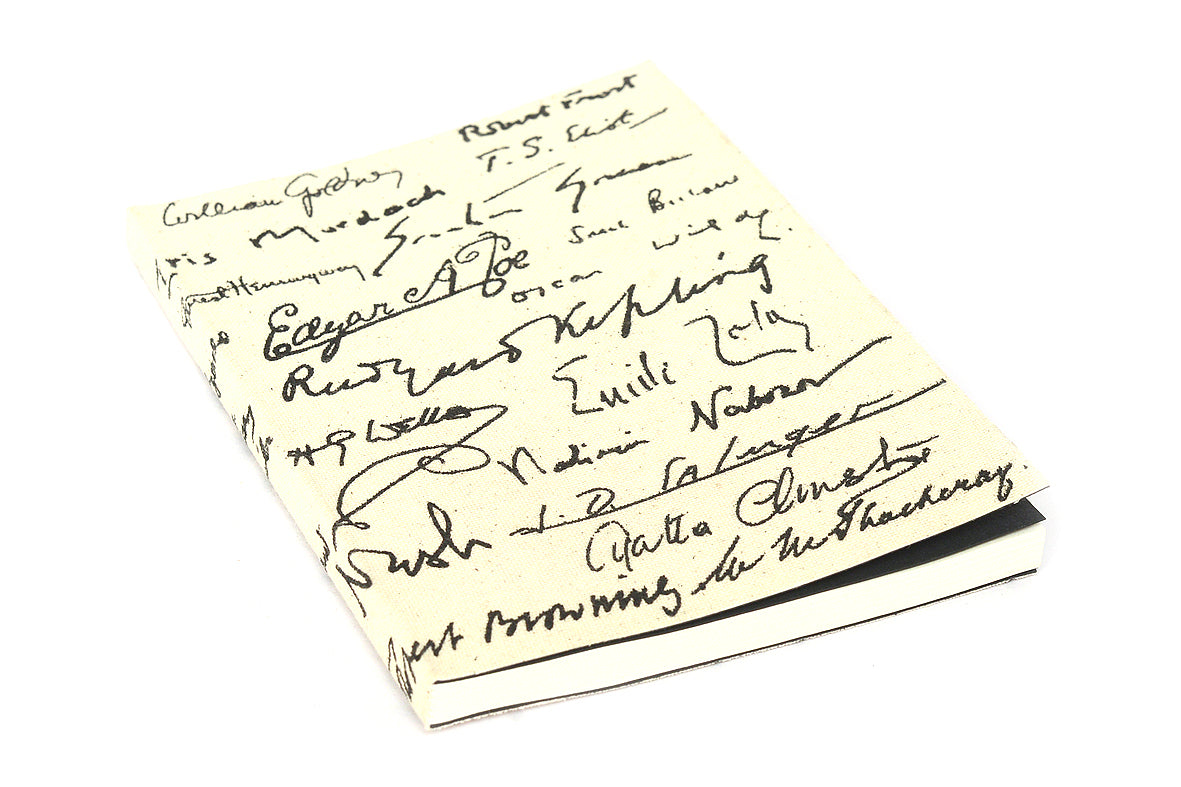 Robert Frost
T. S. Eliot
William Golding
Iris Murdoch
Graham Greene
Ernest Hemingway
Saul Bellow
Edgar A Poe
Oscar Wilde
Rudyard Kipling
Emile Zola
H G Wells
Vladimir Nabokov
J. D. Salinger
Agatha Christie
W M Thackeray.
Browning